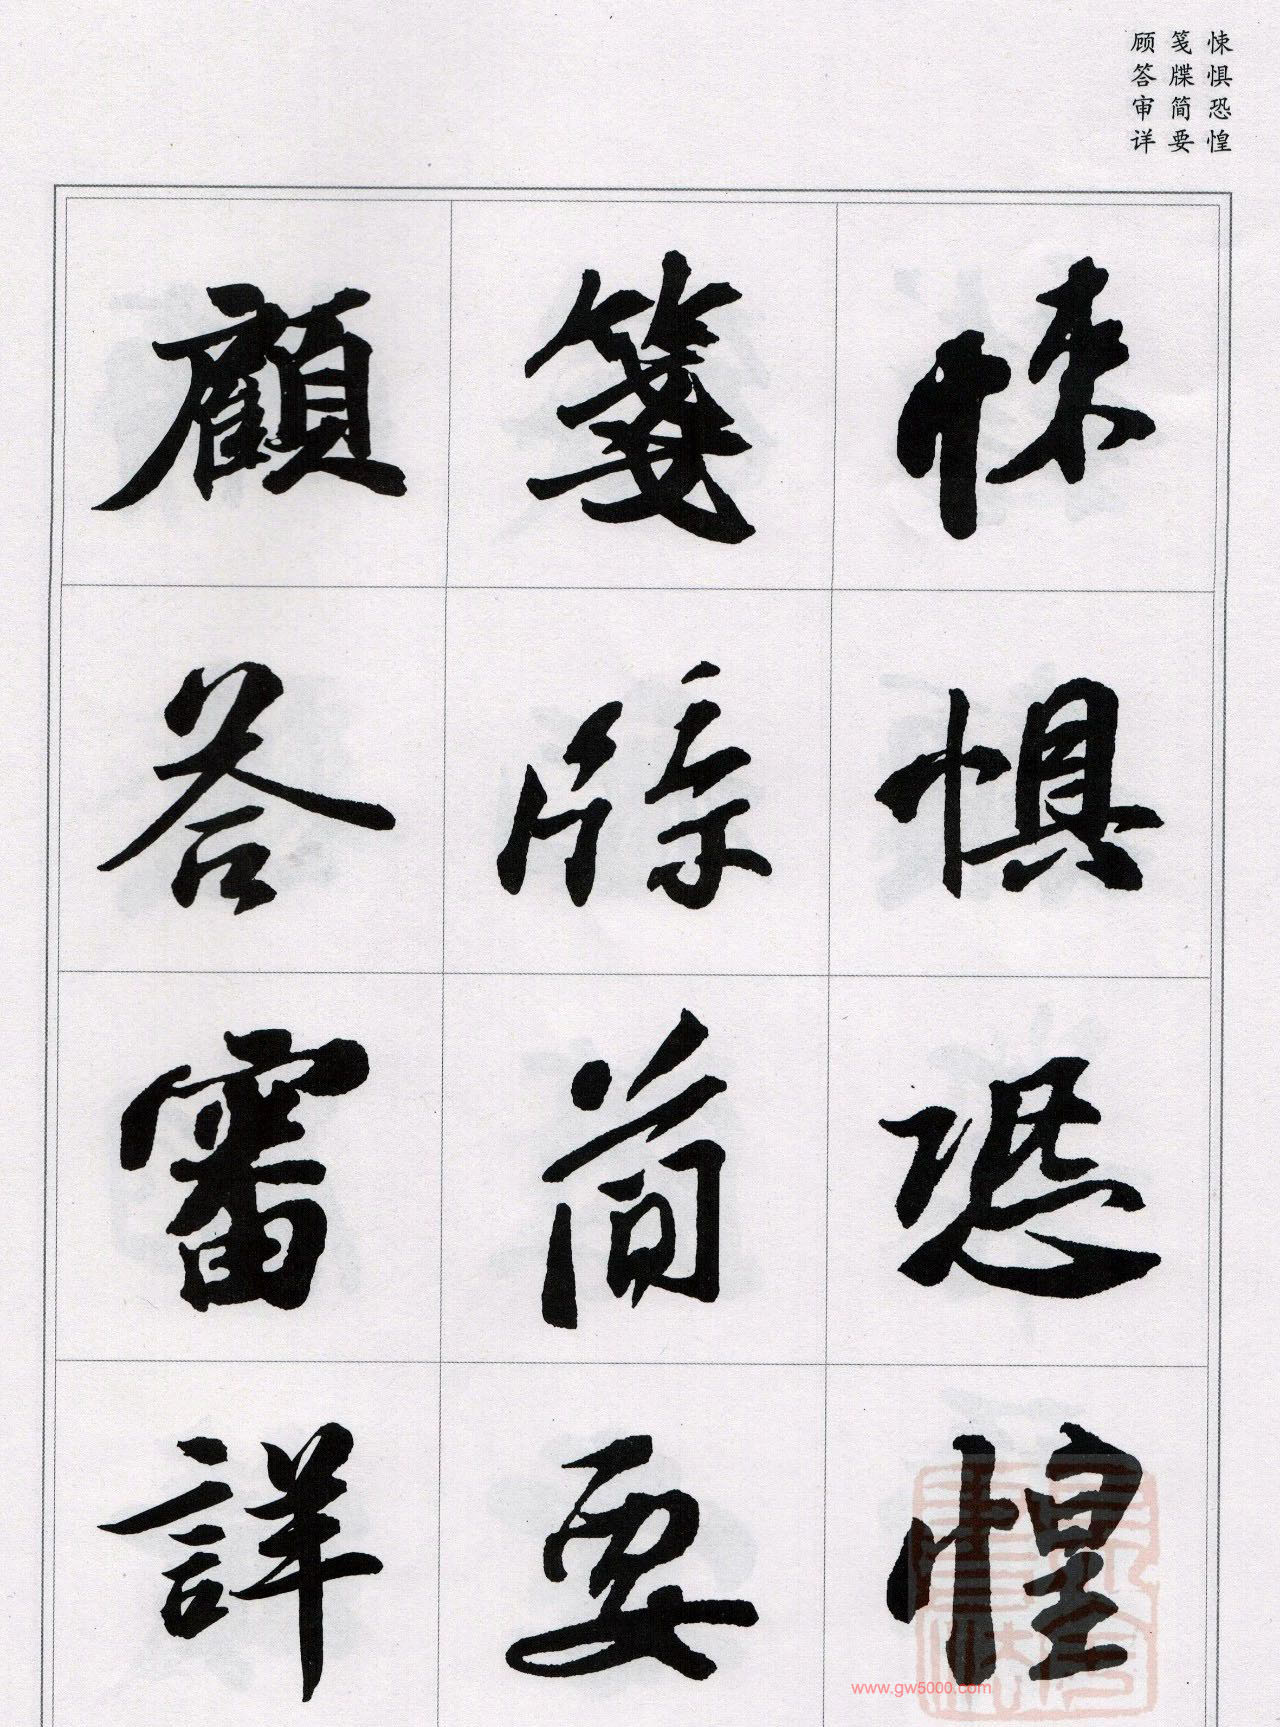 悚惧恐惶
笺牒简要
顾答审详
悚懼恐惶
箋牒简要
顧答審詳
www.gw5000.com